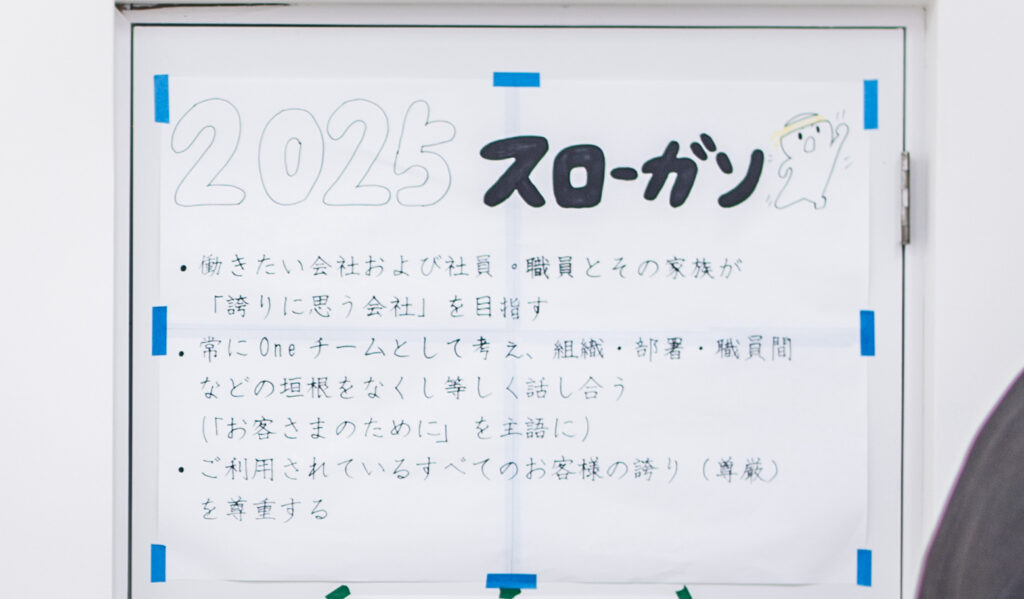 2025 スローガン
・働きたい会社および社員・職員とその家族が
「誇りに思う会社」を目指す
・常にOneチームとして考え、組織・部署・職員間
などの垣根をなくし等しく話し合う
(「お客さまのために」を主語に)
・ご利用されているすべてのお客様の誇り(尊厳)
を尊重する